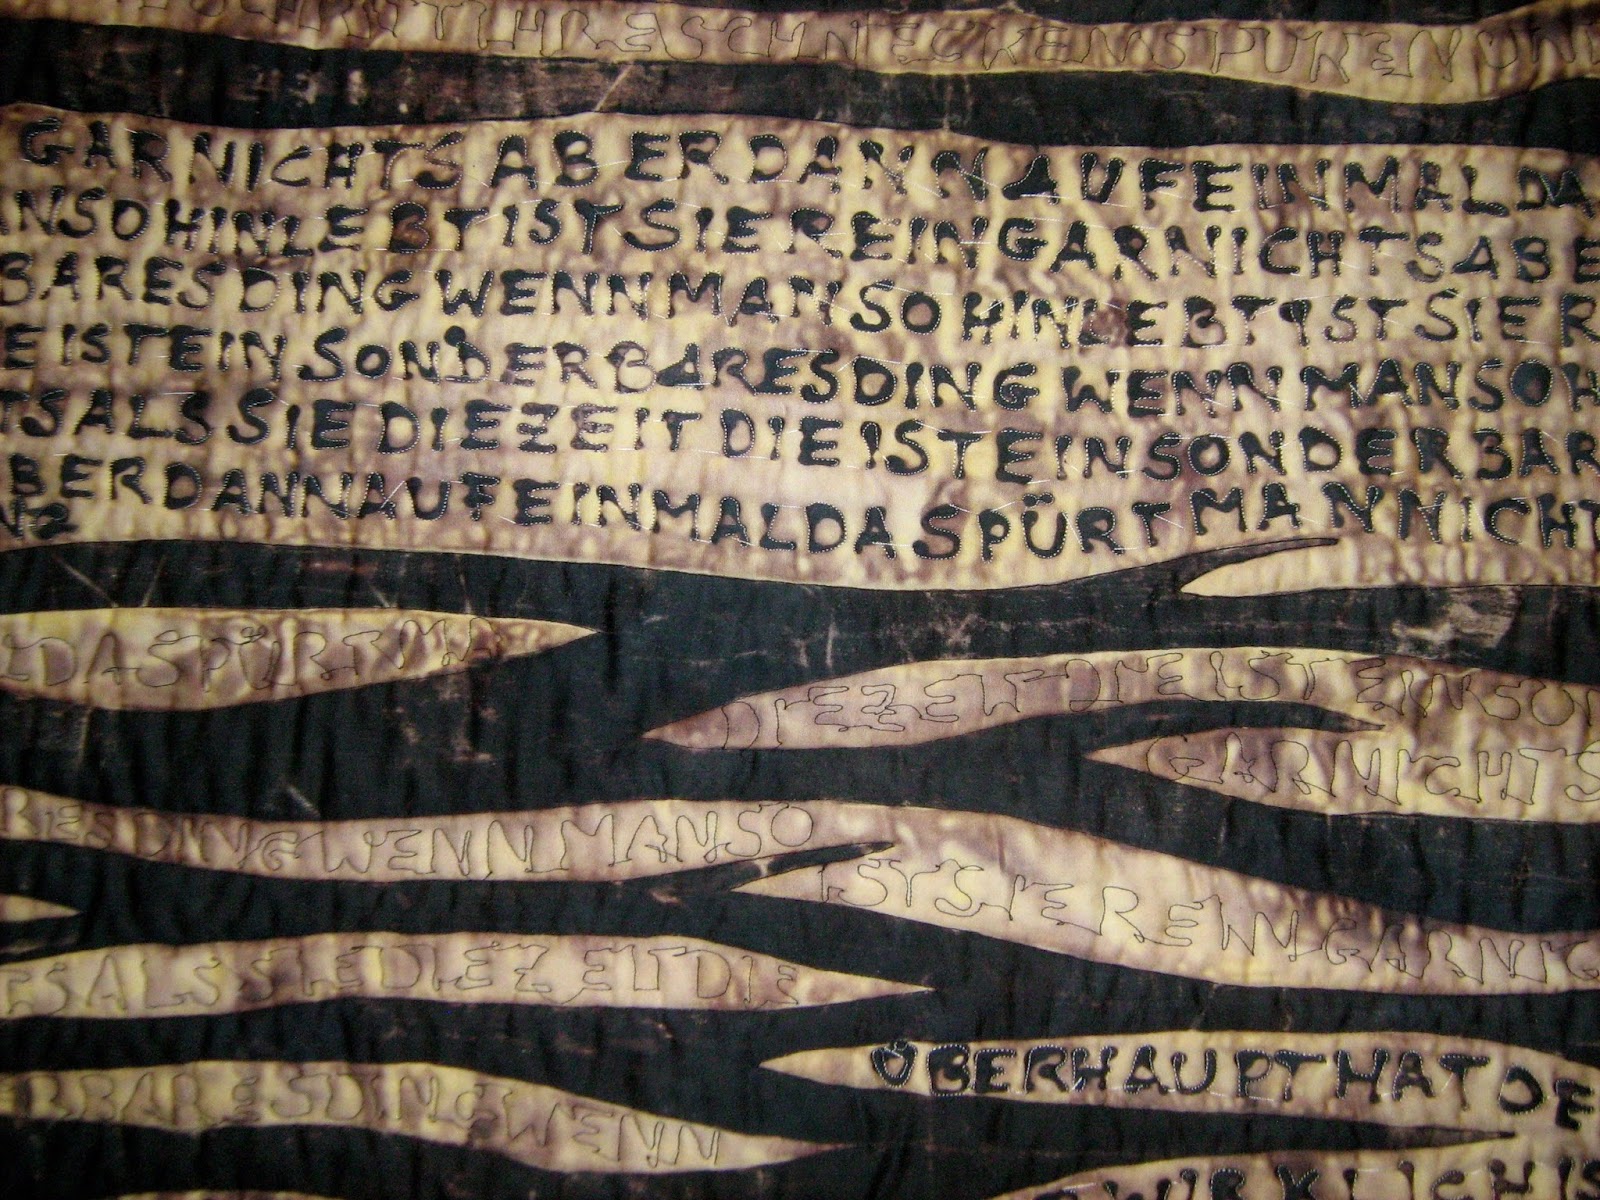 IHRE SCHNECKENSPUREN UND
GARNICHTSABERDANNAUFEINMALDA
ANSOHINLEBTISTSIEREINGARNICHTSABE
BARESDINGWENNMANSOHINLEBTISTSIER
EISTEINSONDERBARESDINGWENNMANSOH
TSALSSIEDIEZEITDIEISTEINSONDERBAR
BERDANNAUFEINMALDASPÜRTMANNICHT
LDASPÜRTMA
DIEZEITDIEISTEINSON
GARNICHTS
RESDINGWENNMANSO
ISTSIEREINGARNIC
TSALSSIEDIEZEITDIE
ÜBERHAUPTHATDE
RBARESDINGWENN
WIRKLICHIS